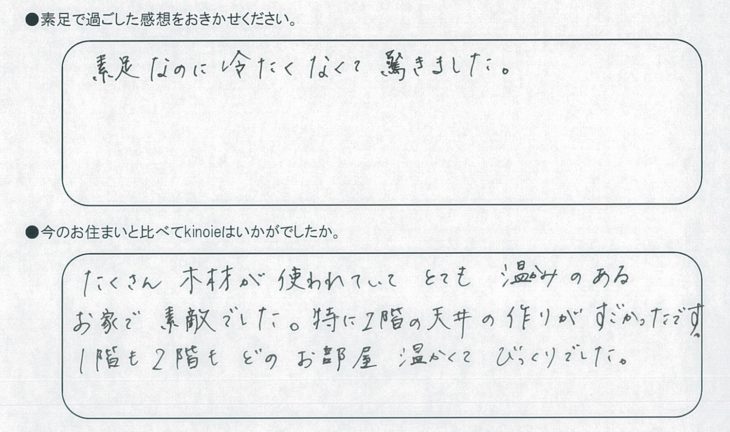 ●素足で過ごした感想をおきかせください。
素足なのに冷たくなくて驚きました。
●今のお住まいと比べてkinoieはいかがでしたか。
たくさん木材が使われていてとても温かみのある
お家で素敵でした。特に2階の天井の作りがすごかったです。
1階も2階もどのお部屋温かくてびっくりでした。